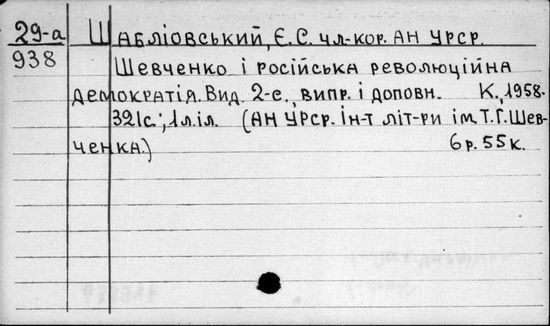 29-а Шабліовський, Є.С. чл-кор. АН УРСР.
938 Шевченко і російська революційна
демократія. Вид. 2-е, випр. і доповн. К., 1958.
321с.; 1л.іл. (АН УРСР. Ін-т літ-ри ім. Т.Г.Шев-
ченка.) 6р. 55к.